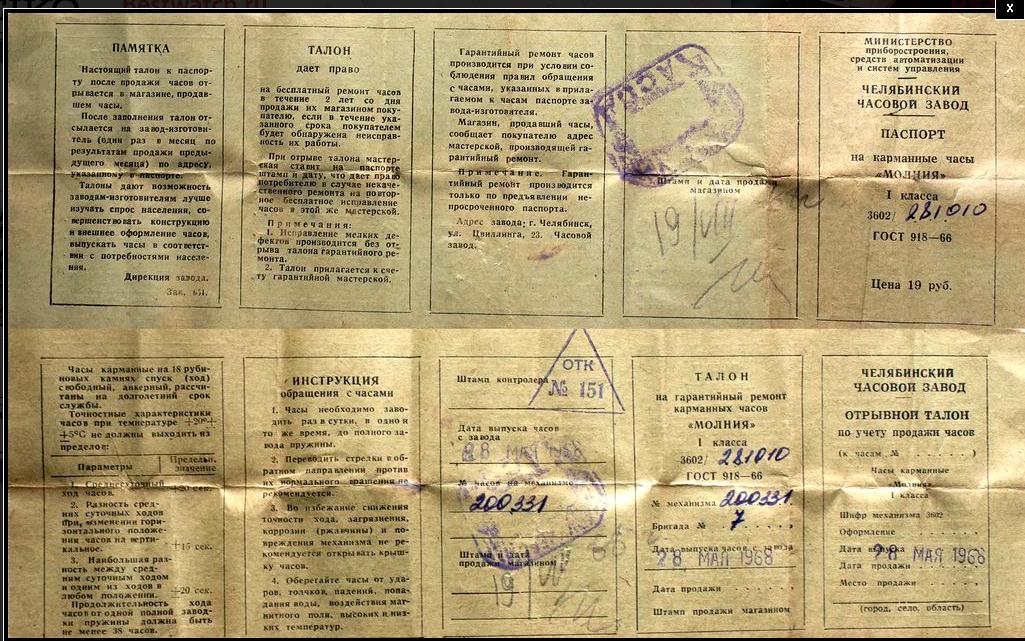 Bestwatch.ru
x
ПАМЯТКА
Настоящий талон к паспор-
ту после продажи часов от-
рывается в магазине, продав-
шем часы.
После заполнения талон от-
сылается на завод-изготови-
тель (один раз в месяц по
результатам продажи преды-
дущего месяца) по адресу,
указанному в паспорте.
Талоны дают возможность
заводам-изготовителям лучше
изучать спрос населения, со-
вершенствовать конструкцию
и внешнее оформление часов,
выпускать часы в соответст-
вии с потребностями населе-
ния.
Дирекция завода.
Зак. 651.
ТАЛОН
дает право
на бесплатный ремонт часов
в течение 2 лет со дня
продажи их магазином поку-
пателю, если в течение ука-
занного срока покупателем
будет обнаружена неисправ-
ность их работы.
При отрыве талона мастер-
ская ставит на паспорте
штамп и дату, что дает право
потребителю в случае некаче-
ственного ремонта на повтор-
ное бесплатное исправление
часов в этой же мастерской.
Примечания:
1. Исправление мелких де-
фектов производится без от-
рыва талона гарантийного ре-
монта.
2. Талон прилагается к сче-
ту гарантийной мастерской.
Гарантийный ремонт часов
производится при условии со-
блюдения правил обращения
с часами, указанных в прила-
гаемом к часам паспорте за-
вода-изготовителя.
Магазин, продавший часы,
сообщает покупателю адрес
мастерской, производящей га-
рантийный ремонт.
Примечание. Гаран-
тийный ремонт производится
только по предъявлении не-
просроченного паспорта.
Адрес завода: г. Челябинск,
ул. Цвиллинга, 23. Часовой
завод.
Штамп и дата продажи
магазином
19/VIII
МИНИСТЕРСТВО
приборостроения,
средств автоматизации
и систем управления
ЧЕЛЯБИНСКИЙ
ЧАСОВОЙ ЗАВОД
ПАСПОРТ
на карманные часы
«МОЛНИЯ»
I класса
3602/ 281010
ГОСТ 918—66
Цена 19 руб.
Часы карманные на 18 руби-
новых камнях спуск (ход)
свободный, анкерный, рассчи-
таны на долголетний срок
службы.
Точностные характеристики
часов при температуре +20°±
±5°С не должны выходить из
пределов:
Параметры
Предельн. значение
1. Среднесуточный
ход часов.
±20 сек.
2. Разность сред-
них суточных ходов
при изменении гори-
зонтального положе-
ния часов на верти-
кальное.
±15 сек.
3. Наибольшая раз-
ность между сред-
ним суточным ходом
и одним из ходов в
любом положении.
±20 сек.
Продолжительность хода
часов от одной полной завод-
ки пружины должна быть
не менее 38 часов.
ИНСТРУКЦИЯ
обращения с часами
1. Часы необходимо заво-
дить раз в сутки, в одно и
то же время, до полного за-
вода пружины.
2. Переводить стрелки в об-
ратном направлении против
их нормального вращения не
рекомендуется.
3. Во избежание снижения
точности хода, загрязнения,
коррозии (ржавчины) и по-
вреждения механизма не ре-
комендуется открывать крыш-
ку часов.
4. Оберегайте часы от уда-
ров, толчков, падений, попа-
дания воды, воздействия маг-
нитного поля, высоких и низ-
ких температур.
Штамп контролера
ОТК
№ 151
Дата выпуска часов
с завода
28 МАЯ 1968
№ часов на механизме
200331
Штамп и дата
продажи магазином
19 VIII
ТАЛОН
на гарантийный ремонт
карманных часов
«МОЛНИЯ»
I класса
3602/ 281010
ГОСТ 918—66
№ механизма 200331
Бригада № 7
Дата выпуска часов с завода
28 МАЯ 1968
Дата продажи
Штамп продажи магазином
ЧЕЛЯБИНСКИЙ
ЧАСОВОЙ ЗАВОД
ОТРЫВНОЙ ТАЛОН
по учету продажи часов
(к часам № . . . . . . . .)
Часы карманные
«Молния»
1 класса
Шифр механизма 3602
Оформление
Дата выпуска 28 МАЯ 1968
Дата продажи
Место продажи
(город, село, область)